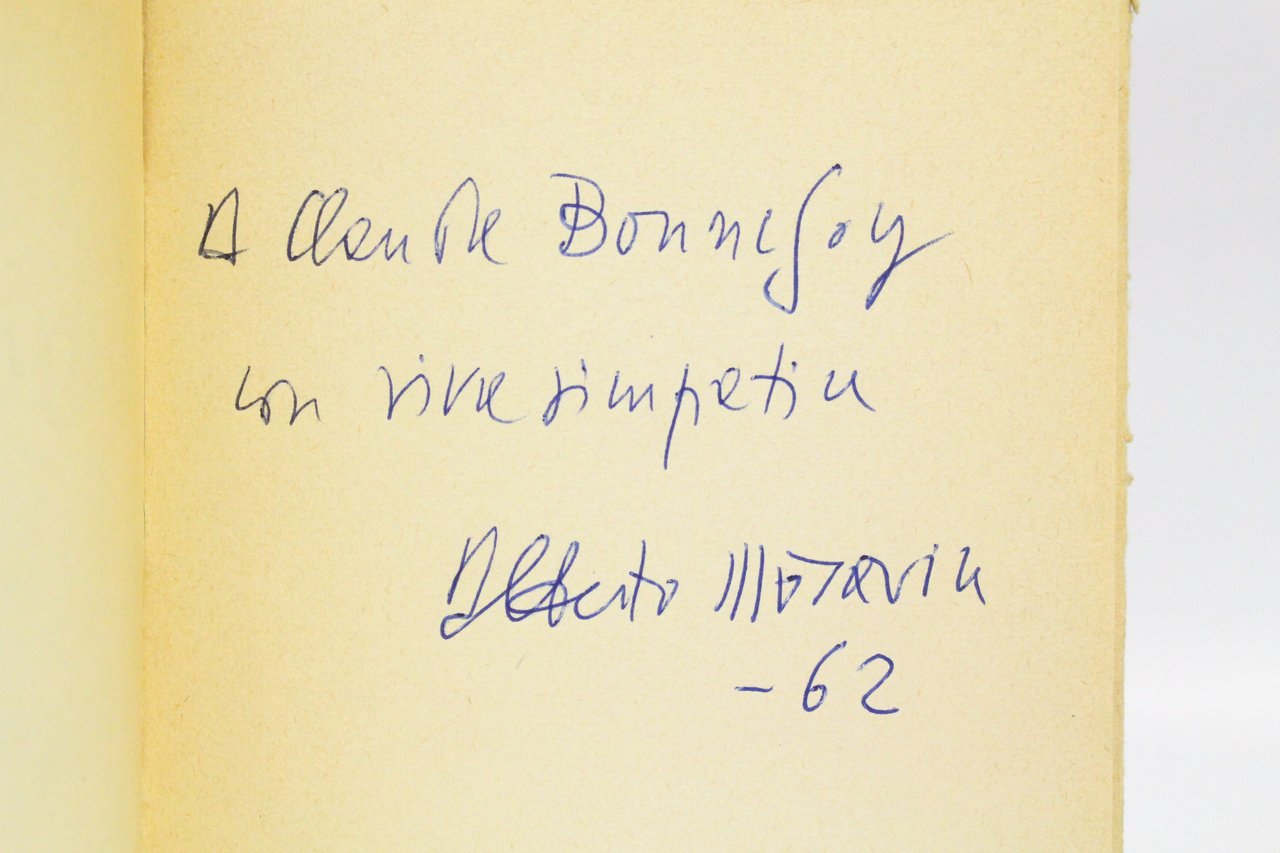 A Claude Bonnefoy
con viva simpatia
Alberto Moravia
- 62